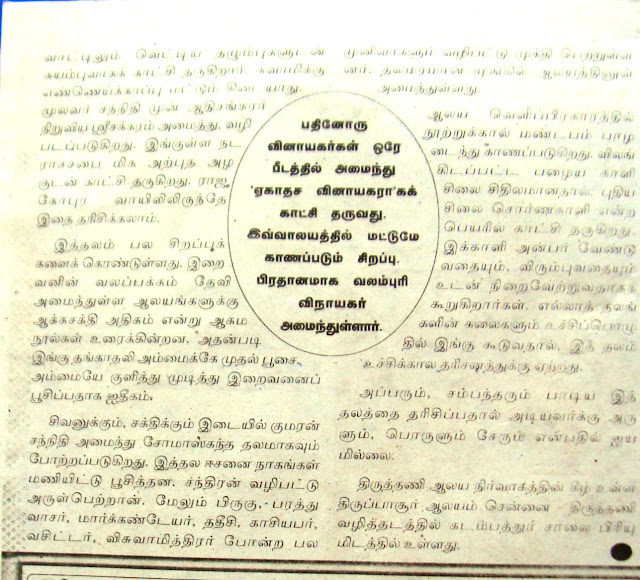 வாட்டினும் வெட்டிய தழும்புகளுடன்
சுயம்புவாகக் காட்சி தருகிறார். சுவாமிக்கு
எண்ணெய்க்காப்பு மட்டும் கிடையாது.
மூலவர் சந்நிதி முன் ஆதிசங்கரர்
நிறுவிய ஸ்ரீசக்கரம் அமைத்து, வழி
படப்படுகிறது. இங்குள்ள நட
ராசசபை மிக அற்புத அழ
குடன் காட்சி தருகிறது. ராஜ
கோபுர வாயிலிலிருந்தே
இதை தரிசிக்கலாம்.
இத்தலம் பல சிறப்புக்
களைக் கொண்டுள்ளது. இறை
வனின் வலப்பக்கம் தேவி
அமைந்துள்ள ஆலயங்களுக்கு
ஆக்கசக்தி அதிகம் என்று ஆகம
நூல்கள் உரைக்கின்றன. அதன்படி
இங்கு தங்காதலி அம்மைக்கே முதல் பூசை.
அம்மையே குளித்து முடித்து இறைவனைப்
பூசிப்பதாக ஐதீகம்.
சிவனுக்கும், சக்திக்கும் இடையில் குமரன்
சந்நிதி அமைந்து சோமாஸ்கந்த தலமாகவும்
போற்றப்படுகிறது. இத்தல ஈசனை நாகங்கள்
மணியிட்டு பூசித்தன. சந்திரன் வழிபட்டு
அருள்பெற்றான். மேலும் பிருகு, பரத்து
வாசர், மார்க்கண்டேயர், ததிசி, காசியபர்,
வசிட்டர், விசுவாமித்திரர் போன்ற பல
பதினோரு
விநாயகர்கள் ஒரே
பீடத்தில் அமைந்து
'ஏகாதச விநாயகரா'கக்
காட்சி தருவது.
இவ்வாலயத்தில் மட்டுமே
காணப்படும் சிறப்பு.
பிரதானமாக வலம்புரி
விநாயகர்
அமைந்துள்ளார்.
முனிவர்களும் வழிபட்டு முக்தி பெற்றுள்ள
னர். தலமரமான மூங்கில் ஆலயத்தினுள்
அமைந்துள்ளது.
ஆலய வெளிப்பிரகாரத்தில்
நூற்றுக்கால் மண்டபம் பாழ
டைந்து காணப்படுகிறது.
கிடப்பட்ட பழைய காளி
சிலை சிதிலமானதால், புதிய
சிலை சொர்ணகாளி என்ற
பெயரில் காட்சி தருகிறது.
இக்காளி அன்பர் வேண்டு
வதையும், விரும்புவதையும்
உடன் நிறைவேற்றுவதாகக்
கூறுகிறார்கள். எல்லாத் தலங்
களின் கலைகளும் உச்சிப்பொழு
தில் இங்கு கூடுவதால், இத் தலம்
'உச்சிக்கால தரிசனத்துக்கு ஏற்றது.
அப்பரும், சம்பந்தரும் பாடிய இத்
தலத்தை தரிசிப்பதால் அடியவர்க்கு அரு
ளும், பொருளும் சேரும் என்பதில் ஐய
மில்லை.
திருத்தணி ஆலய நிர்வாகத்தின் கீழ் உள்ள
திருப்பாசூர் ஆலயம் சென்னை - திருத்தணி
வழித்தடத்தில் கடம்பத்தூர் சாலை பிரியு
மிடத்தில் உள்ளது.